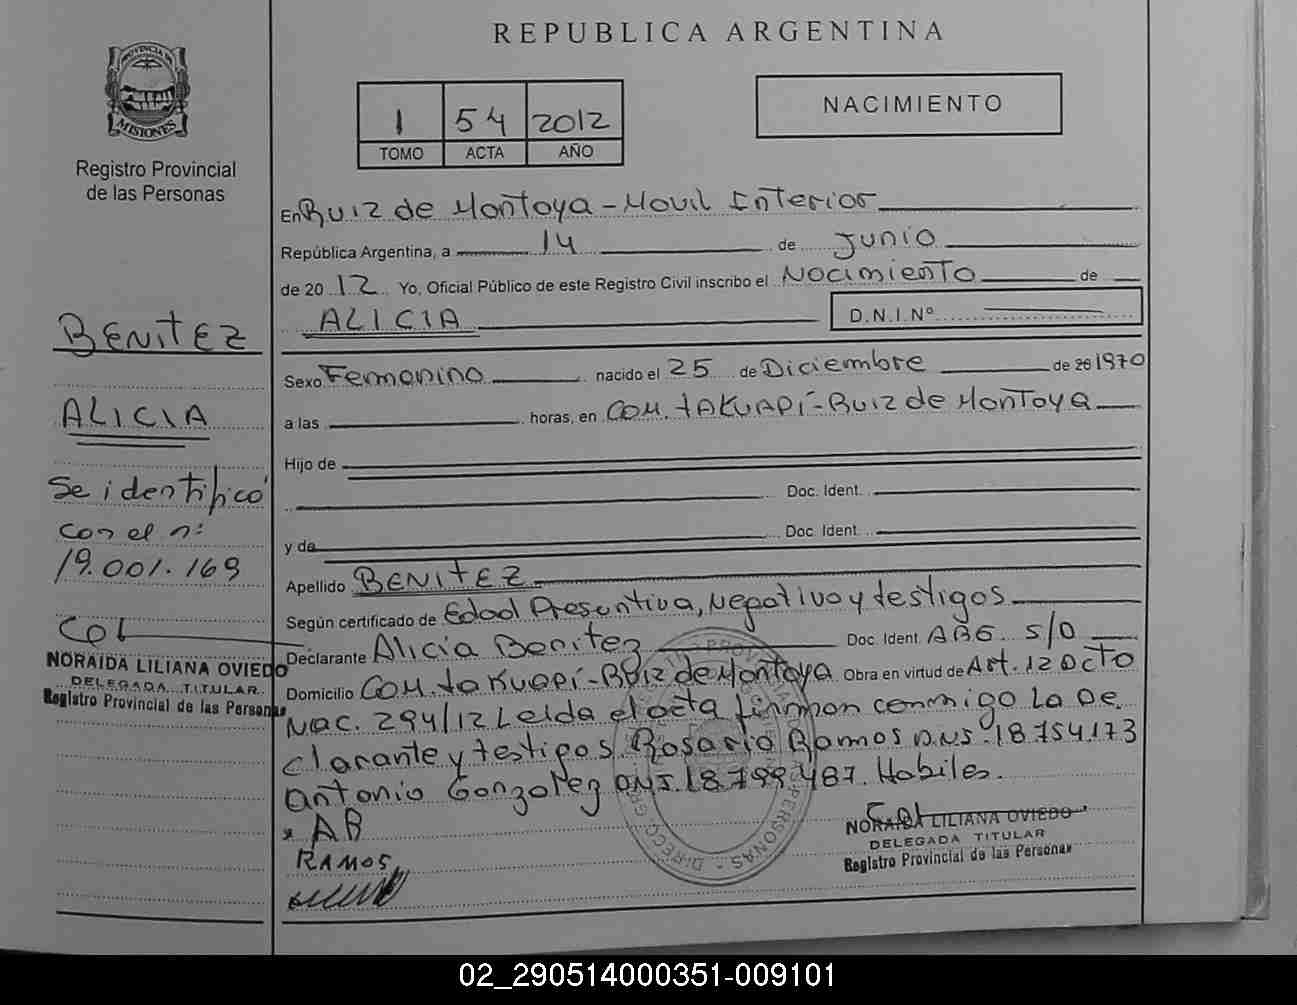 REPUBLICA ARGENTINA
PROVINCIA DE
MISIONES
Registro Provincial
de las Personas
1 54 2012
TOMO ACTA AÑO
NACIMIENTO
En Ruiz de Montoya - Movil Interior
República Argentina, a 14 de Junio
de 2012 Yo, Oficial Público de este Registro Civil inscribo el Nacimiento de
ALICIA D.N.I.Nº
Sexo Femenino nacido el 25 de Diciembre de 20 1970
a las horas, en Com. takuapí - Ruiz de Montoya
Hijo de
Doc. Ident.
y de Doc. Ident.
Apellido BENITEZ
Según certificado de Edad Presuntiva, Negativo y testigos
Declarante Alicia Benitez Doc. Ident. ABG. S/D
Domicilio Com. takuapí - Ruiz de Montoya Obra en virtud de Art. 12 Dcto
Nac. 294/12 Leida el acta firman conmigo la De
clarante y testigos Rosario Ramos DNI. 18.754.173
Antonio Gonzalez DNI. 18.799.487. Habiles.
x AB
RAMOS
NORAIDA LILIANA OVIEDO
DELEGADA TITULAR
Registro Provincial de las Personas
BENITEZ
ALICIA
Se identificó
con el nº
19.001.169
NORAIDA LILIANA OVIEDO
DELEGADA TITULAR
Registro Provincial de las Personas
02_290514000351-009101